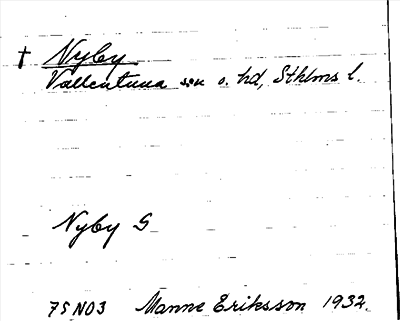 † Nyby
Vallentuna sn o. hd, Sthlms l.
Nyby G
75 NO3 Manne Eriksson 1932.